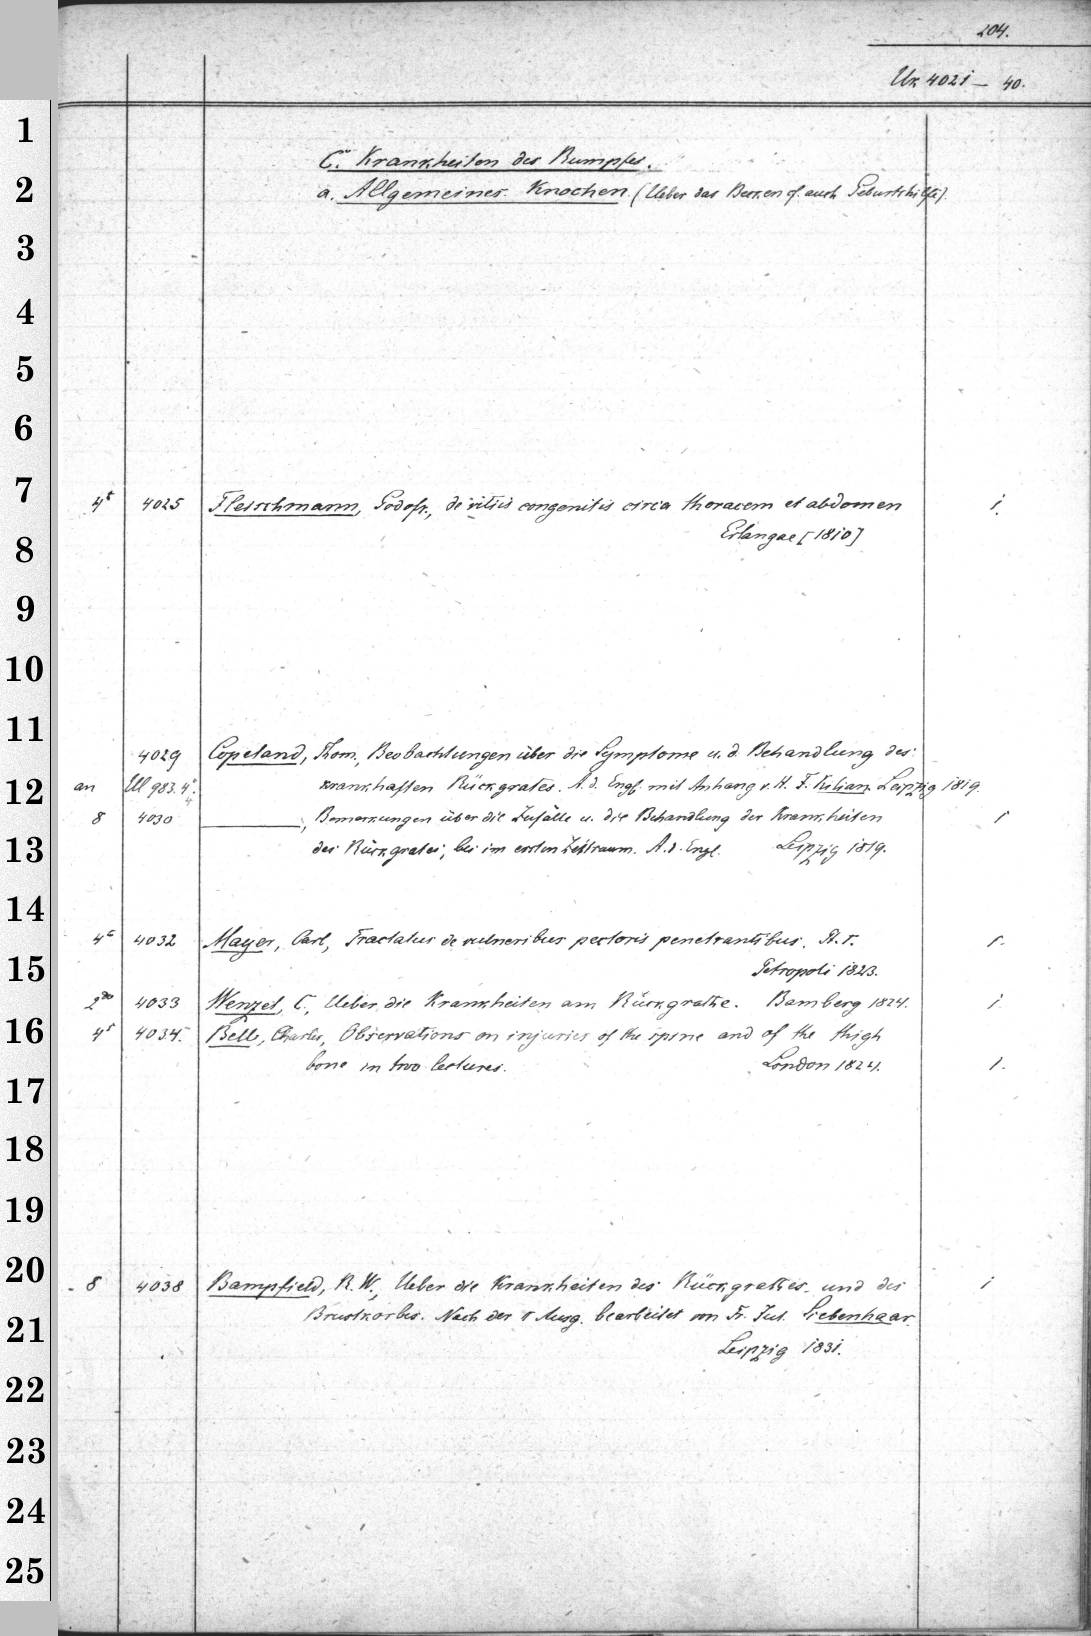 204.
Ux 4021 – 40.
1
C. Krankheiten des Rumpfes.
2
a. Allgemeines. Knochen (Ueber das Becken cf. auch Geburtshilfe).
3
4
5
6
7
4t 4025 Fleischmann, Godofr., de vitiis congenitis circa thoracem et abdomen 1.
8
Erlangae [1810]
9
10
11
4029 Copeland, Thom., Beobachtungen über die Symptome u. d. Behandlung des
12
an Ul 983.4° krankhaften Rückgrates. A. d. Engl. mit Anhang v. H. F. Kilian. Leipzig 1819.
8 4030 ———, Bemerkungen über die Zufälle u. die Behandlung der Krankheiten 1
13
des Rückgrates, bes im ersten Zeitraum. A. d. Engl. Leipzig 1819.
14
4t 4032 Mayer, Carl, Tractatus de vulneribus pectoris penetrantibus. A. 1. 1.
15
Petropoli 1823.
2do 4033 Wenzel, C., Ueber die Krankheiten am Rückgrathe. Bamberg 1824. 1
16
4t 4034. Bell, Charles, Observations on injuries of the spine and of the thigh
bone in two lectures. London 1824. 1.
17
18
19
20
8 4038 Bampfield, R. W., Ueber die Krankheiten des Rückgrathes und des 1
Brustkorbes. Nach der 1 Ausg. bearbeitet von Fr. Jul. Siebenhaar.
21
Leipzig 1831.
22
23
24
25